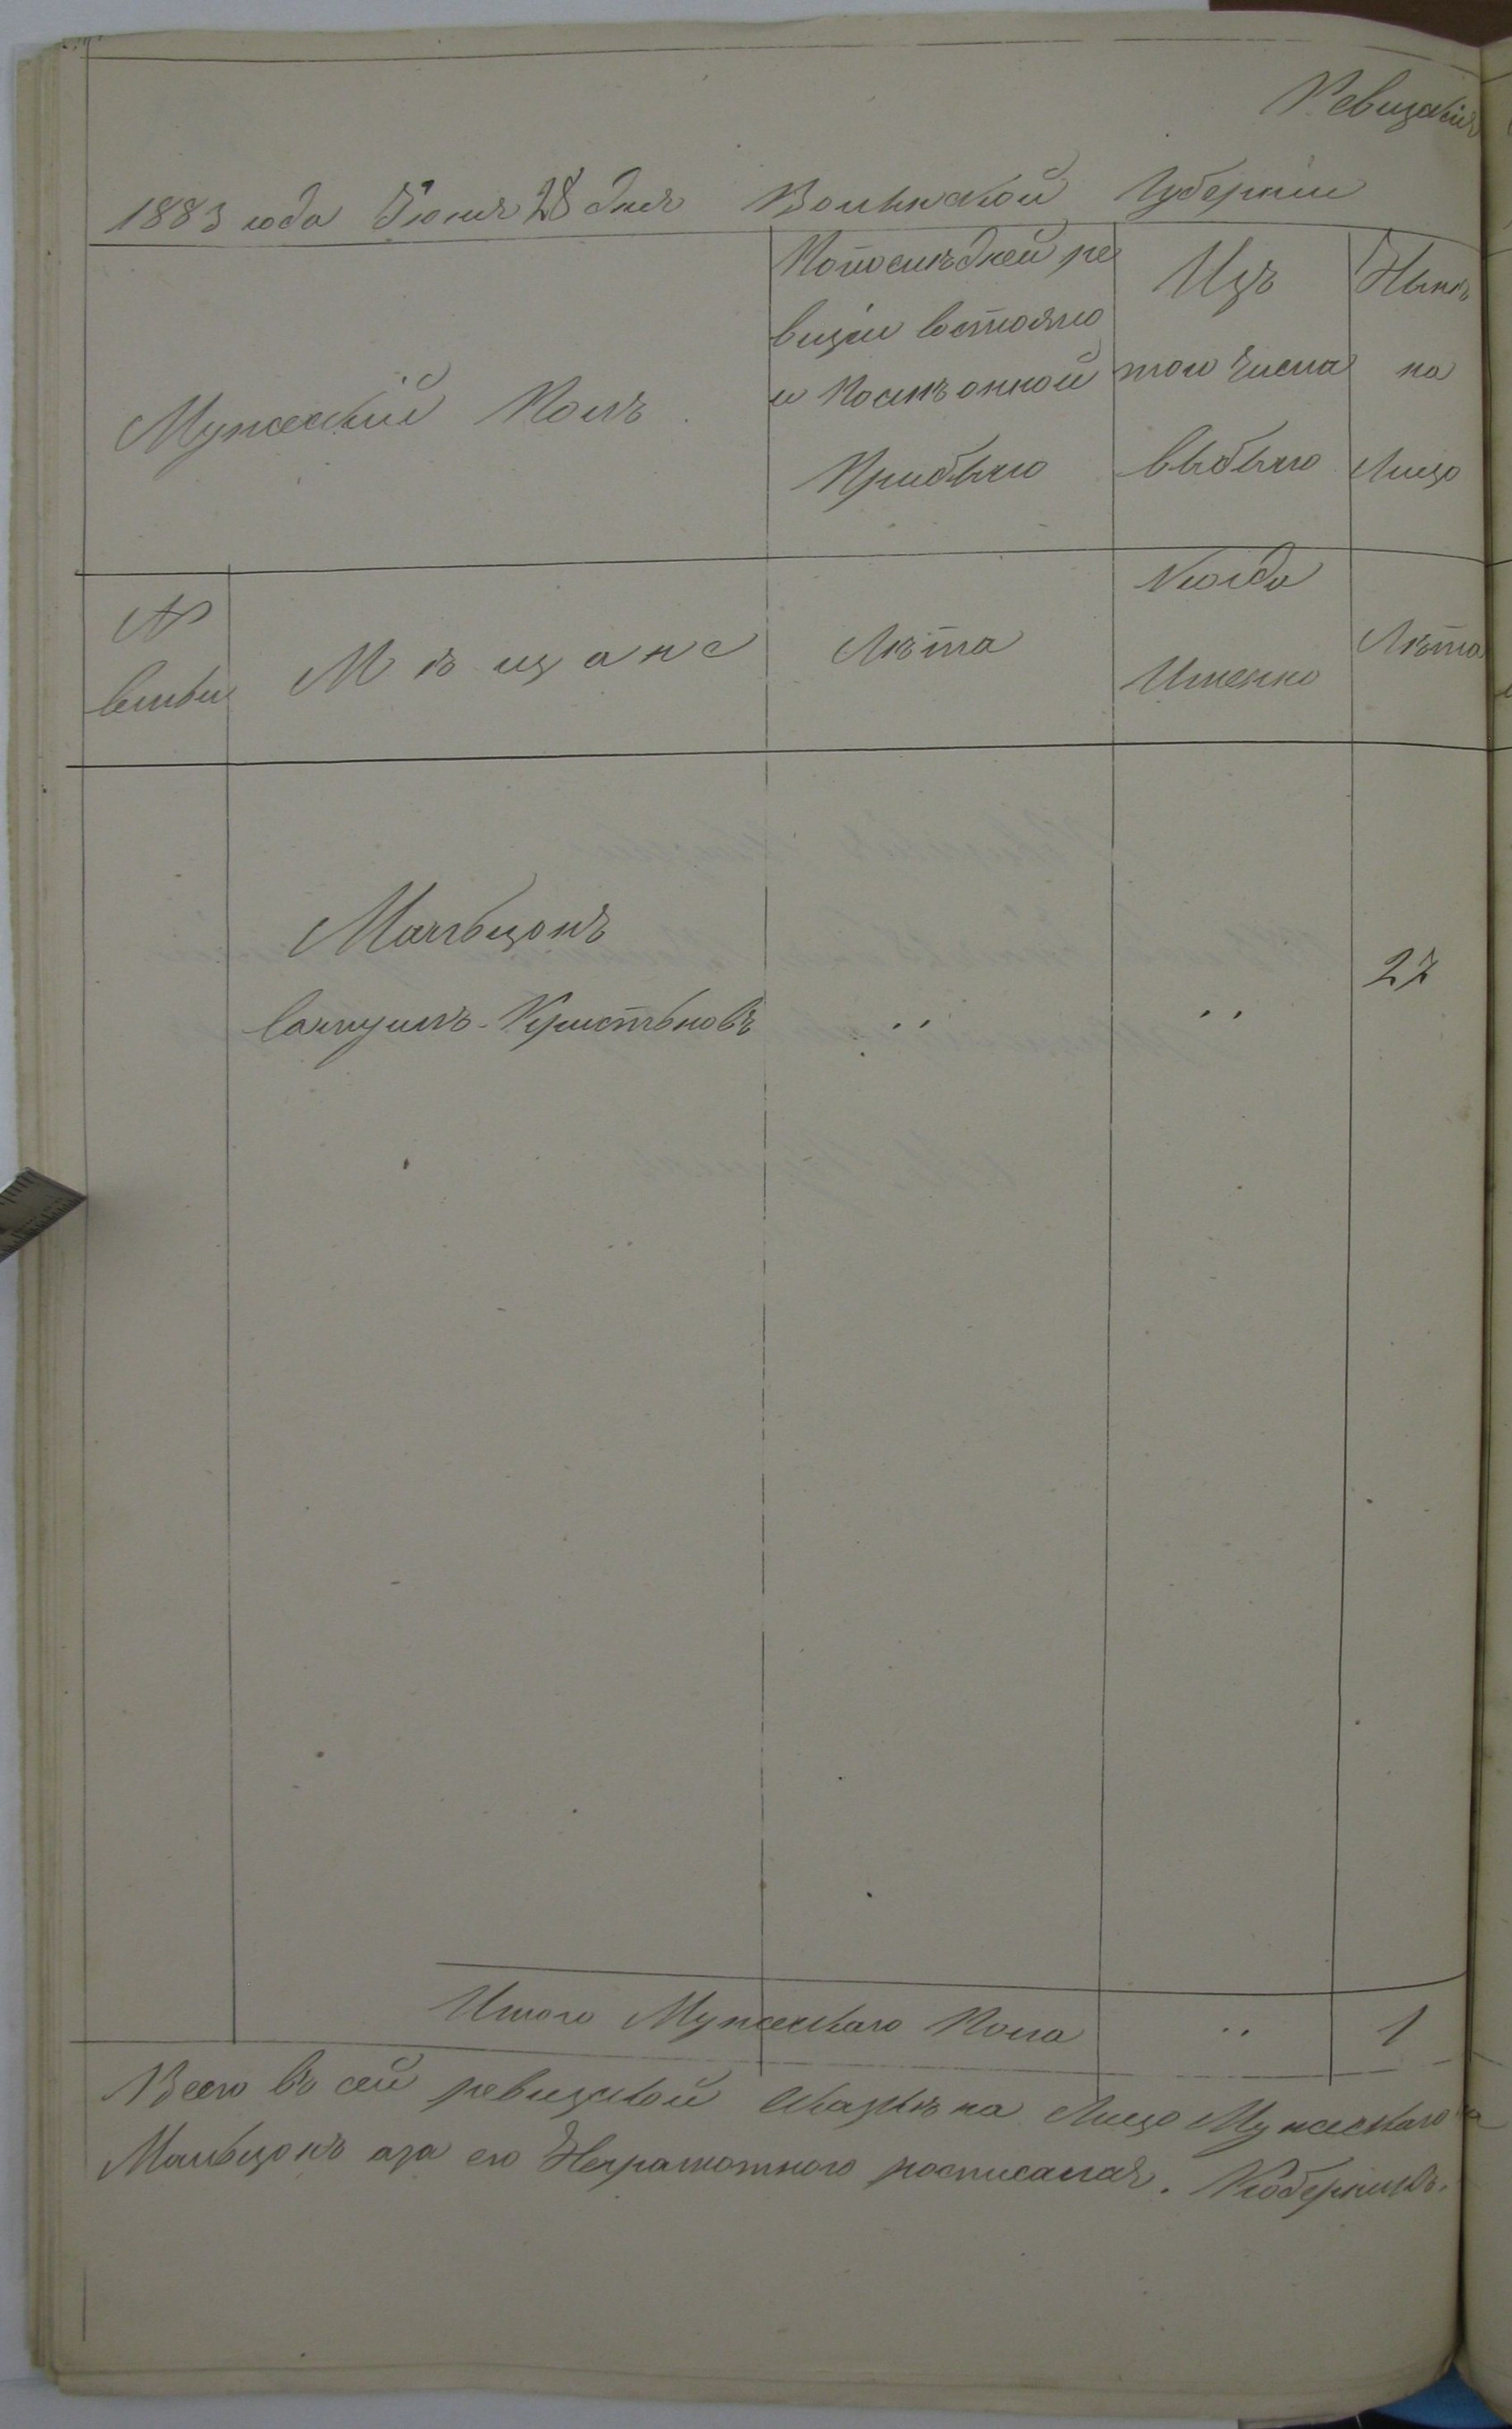 Ревизкія
1883 года Іюня 28 дня Волынской Губерніи
Мужескій Полъ
Попослѣдней ре
визіи состояло
и После оной
Прибыло
Изъ
того числа
выбыло
Нынѣ
на
Лицо
№
семьи
Мѣщане
Лѣта
Когда
Именно
Лѣта
Мальцонъ
27
Итого Мужескаго Пола 1
Всего въ сей ревизкой сказкѣ на Лицо Мужескаго
Мальцонъ аза его Неграмотного росписался.